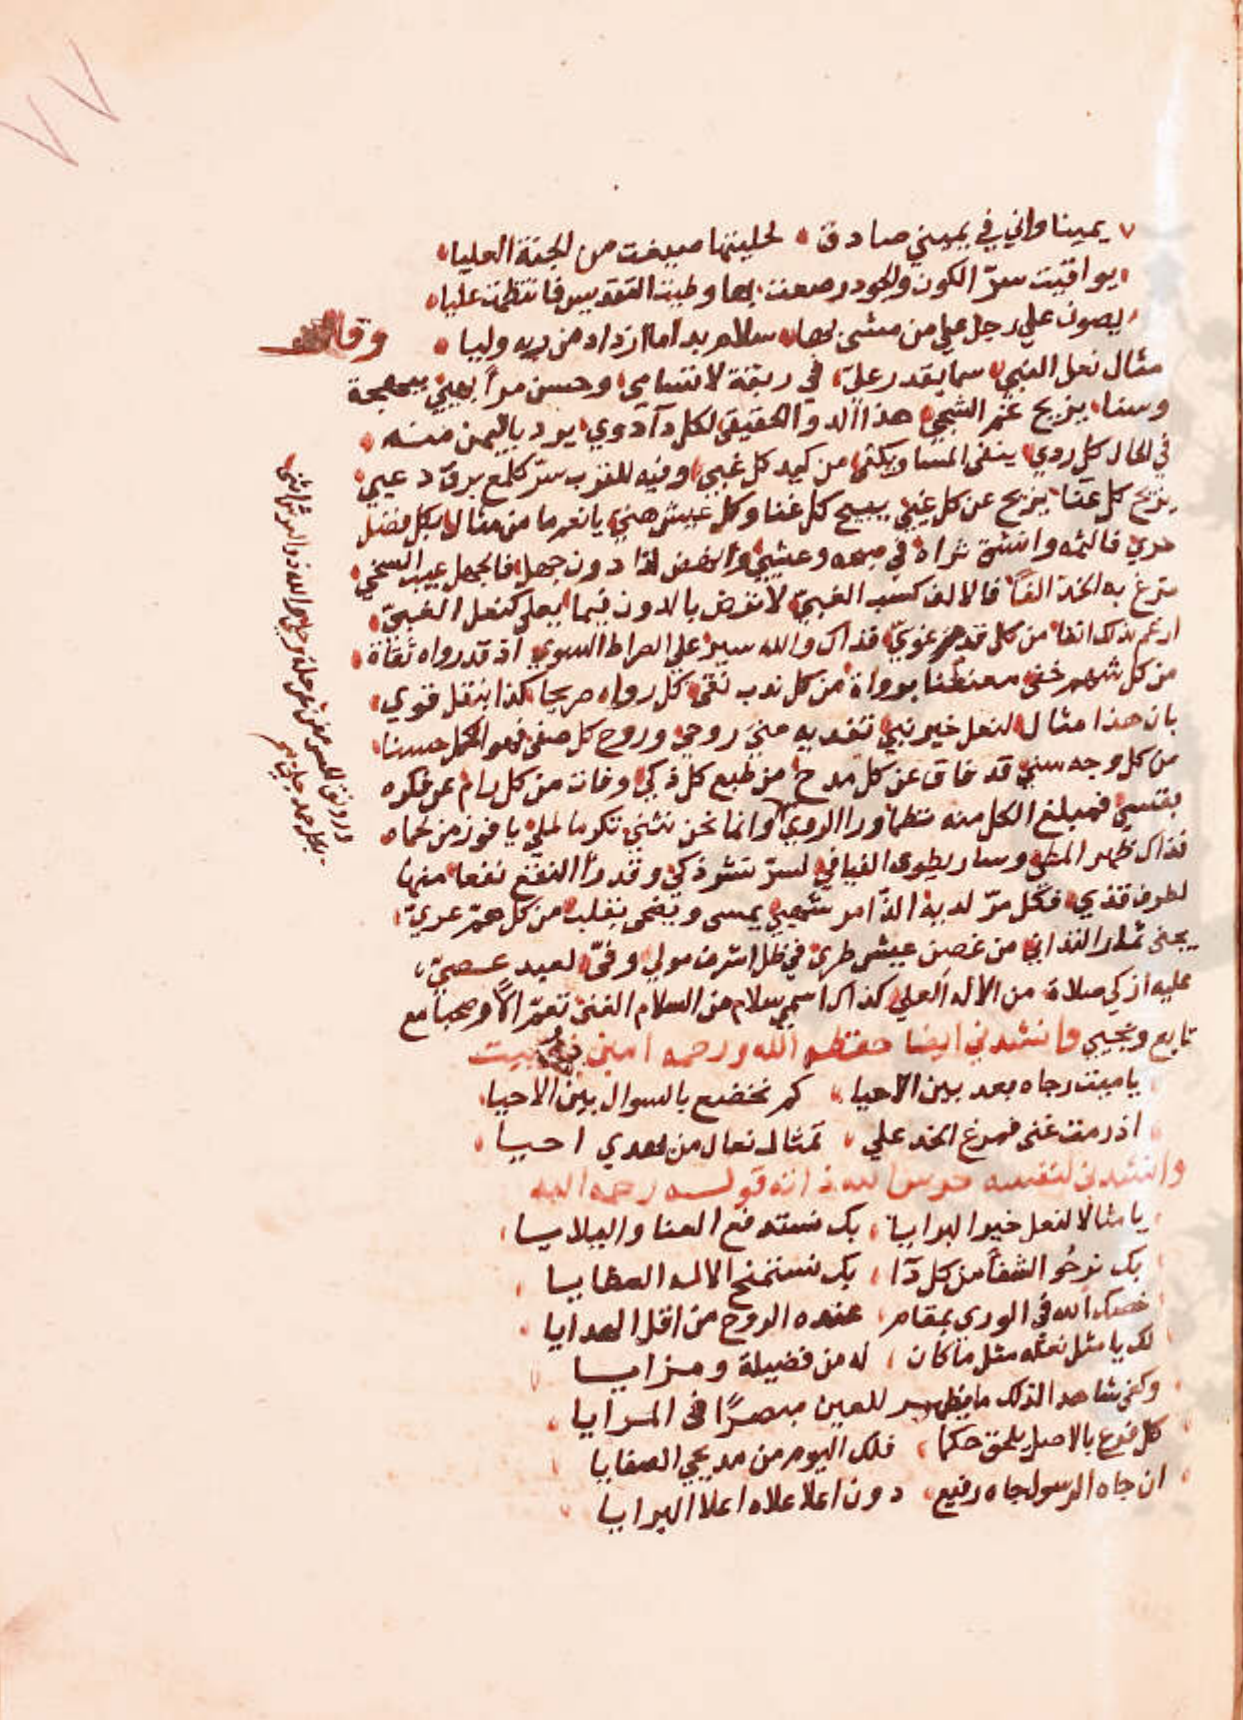 ٧٧
يمينا واني في يميني صادق لحليتها صيغت من الجنة العليا
يواقيت سرّ الكون والجود رصعت بها وطيت التقديس فانتظمت عليا
يصون علي رجل علي من مشى بها سلام بدا ما ازداد من ربه وليا وقال
مثال نعل النبي سما بقدر عليّ في ربقة لا تسامى وحسن مرأ بهيّ ببهجة
وسنا يزيح غم الشجي هذا الدوا الحقيقي لكل دآ دوي يود باليمن منه
في الحال كل روي ينفي المساويكفي من كيد كل غبي وفيه للقرب سرّ كلمع برق
يزيح كل عنا يزيح عن كل غيّ يبيح كل غنا وكل عيش هني يا نعم ما من مثال بكل فضل
حري فالثمه وانشق ثراه في صبحه وعشيّ وانهض لذا دون جهل فالجهل عيب السخي
مرغ به الخد الفًا فالالف كسب الغبيّ لا ترض بالدون فيما يعلي كنعل
ارغم بذلك انفا من كل قدم غويّ فذاك والله سير علي الصراط السوي اذ قد رواه ثقاة
من كل شهم خفي معنعنا برواة من كل ندب نقي كل رواه صريحا كذا بنقل قوي
بان هذا مثال لنعل خير نبي تفديه مني روحي وروح كل صفي فهو المكمل حسنا
من كل وجه سني قد فاق عن كل مدح من طبع كل ذكي وفات من كل رام عن فكره
بقسي فمبلغ الكل منه تنظما ورا الروي وانما نحن نثني تكرما لملي يا فوز من لحماه
فذاك ظهر المطي وسار يطوى الفيافي لسرّ نشر ذكي وقد رأ النفع نفعا منها
لطرف قذي فكل مرّ لديه الذّ امر شهي يمسى ويضحى بقلب من كل همّ عريّ
يجني ثمار التداني من غصن عيش طري في ظل اشرف مولي وفيّ لعبد عصيّ
عليه ازكي صلاة من الاله العلي كذاك اسمي سلام من السلام الغني تعمّ الاً وصحبا مع
تابع ونجيي وانشدني ايضا حفظه الله ورحمه امين بيت
يا ميت رجاه بعد بين الاحيا كم تخضع بالسوال بين الاحيا
اذ رمت غنى فمرغ الخد علي تمثال نعال من لهدي احيا
وانشدني لنفسه حرس الله ذاته قوله رحمه الله
يا مثالا لنعل خير البرايا بك نستدفع العنا والبلايا
بك نرجُو الشفأ من كل دآ بك نستمنح الاله العطايا
خصك الله في الورى بمقام عنده الروح من اقل الهدايا
لك يا مثل نعله مثل ما كان له من فضيلة ومزايا
وكفى شاهدا لذلك ما يظهر للعين مبصرًا في المرايا
كل فرع بالاصل يلحق حكما فلك اليوم من مديحي الصفايا
ان جاه الرسول جاه رفيع دون اعلا علاه اعلا البرايا